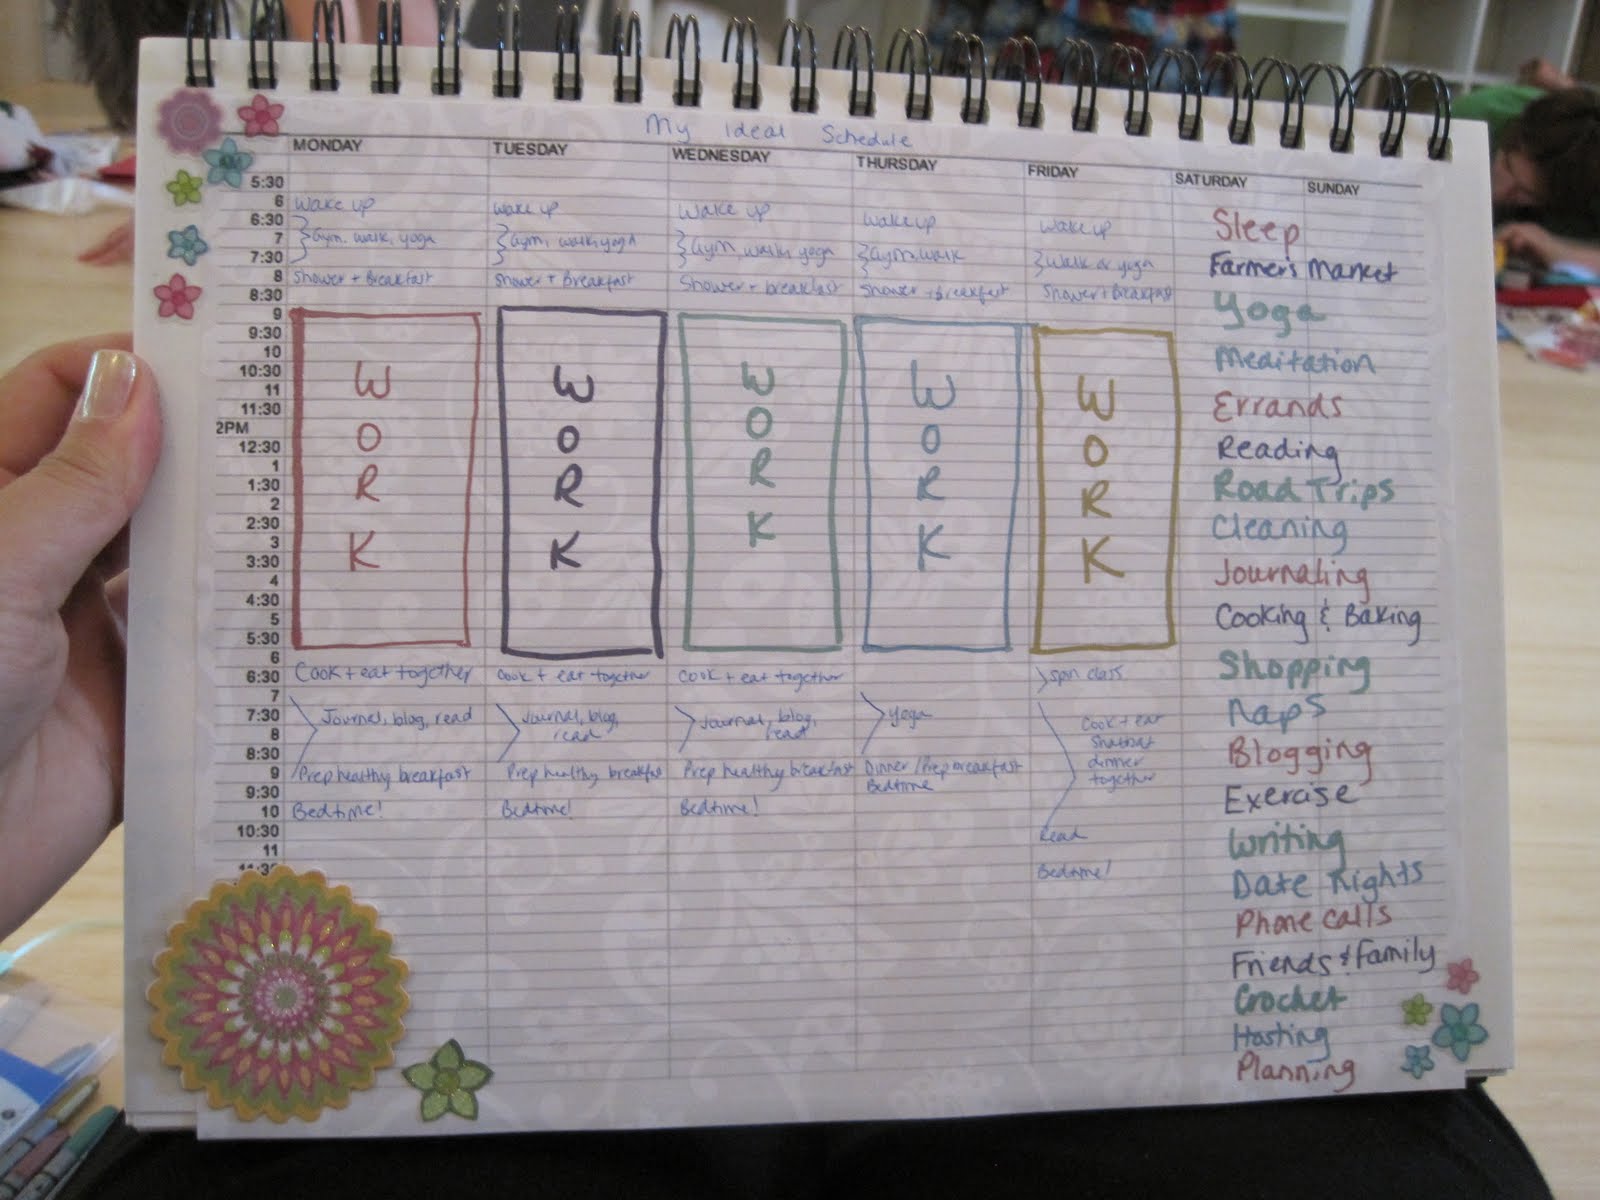 My Ideal Schedule
MONDAY TUESDAY WEDNESDAY THURSDAY FRIDAY SATURDAY SUNDAY
5:30
6
6:30
7
7:30
8
8:30
9
9:30
10
10:30
11
11:30
2PM
12:30
1
1:30
2
2:30
3
3:30
4
4:30
5
5:30
6
6:30
7
7:30
8
8:30
9
9:30
10
10:30
11
11:30
Wake up
Gym, walk, yoga
Shower + Breakfast
WORK
Cook + eat together
Journal, blog, read
Prep healthy breakfast
Bedtime!
Wake up
Gym, walk, yoga
Shower + Breakfast
WORK
Cook + eat together
Journal, blog,
read
Prep healthy breakfast
Bedtime!
Wake up
Gym, walk, yoga
Shower + breakfast
WORK
Cook + eat together
Journal, blog,
read
Prep healthy breakfast
Bedtime!
Wake up
Gym, walk
Shower + Breakfast
WORK
Yoga
Dinner/Prep breakfast
Bedtime
Wake up
Walk or yoga
Shower + Breakfast
WORK
Spin class
Cook + eat
Shabbat
dinner
together
Read
Bedtime!
Sleep
Farmer's Market
Yoga
Meditation
Errands
Reading
Road Trips
Cleaning
Journaling
Cooking & Baking
Shopping
Naps
Blogging
Exercise
Writing
Date Nights
Phone calls
Friends & Family
Crochet
Hosting
Planning